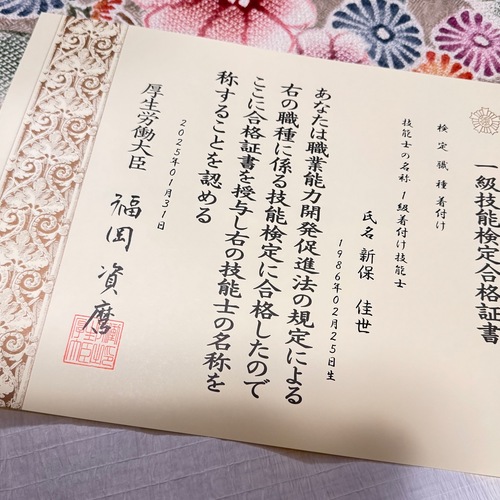 一級技能検定合格証書
検定職種 着付け
技能士の名称 1級着付け技能士
氏名 新保 佳世
1986年02月25日生
あなたは職業能力開発促進法の規定による
右の職種に係る技能検定に合格したので
ここに合格証書を授与し右の技能士の名称を
称することを認める
2025年01月31日
厚生労働大臣 福岡 資麿